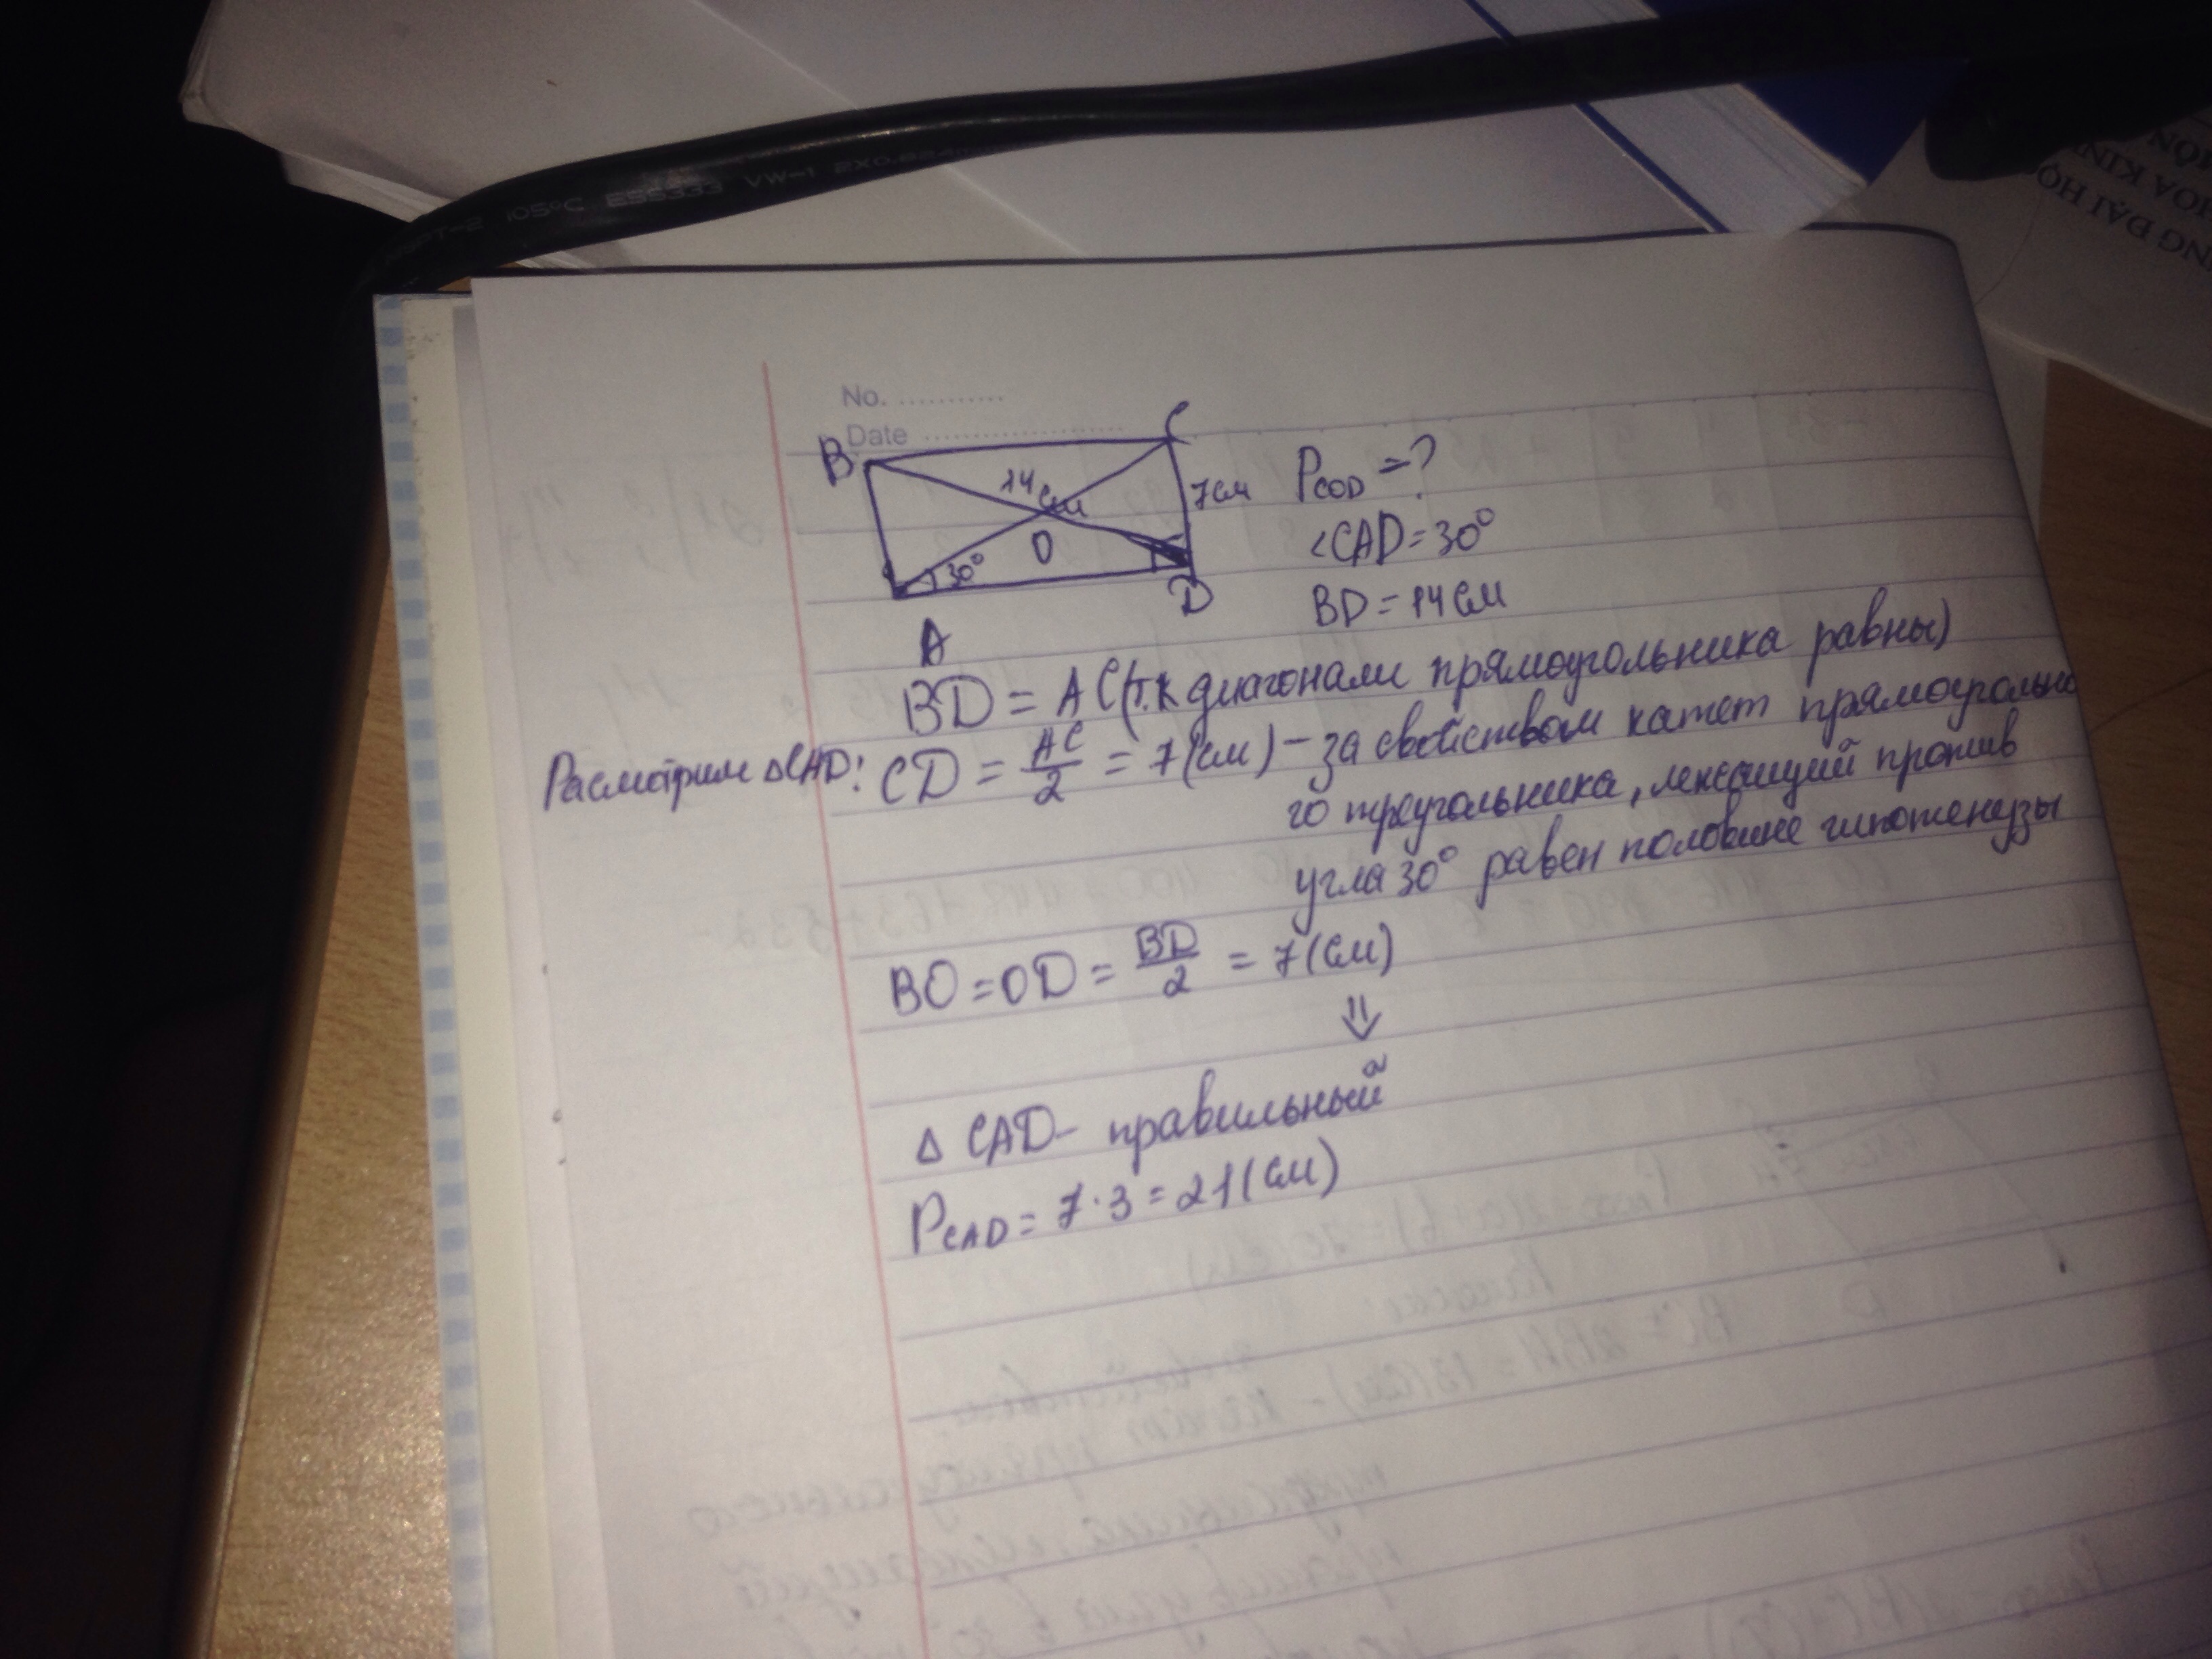 105°C E55333 VW-1
No. ...........
Date ......................
B
C
14 см
7см
O
30°
A
D
P COD =?
<CAD=30°
BD=14см
BD = AC(т.к диагонали прямоугольника равны)
Расмотрим △CAD: CD = AC/2 = 7(см) - за свойством катет прямоугольно
го треугольника, лежащий против
угла 30° равен половине гипотенузы
BO=OD= BD/2 = 7(см)
⇓
△ CAD- правильный
P CAD = 7·3=21(см)